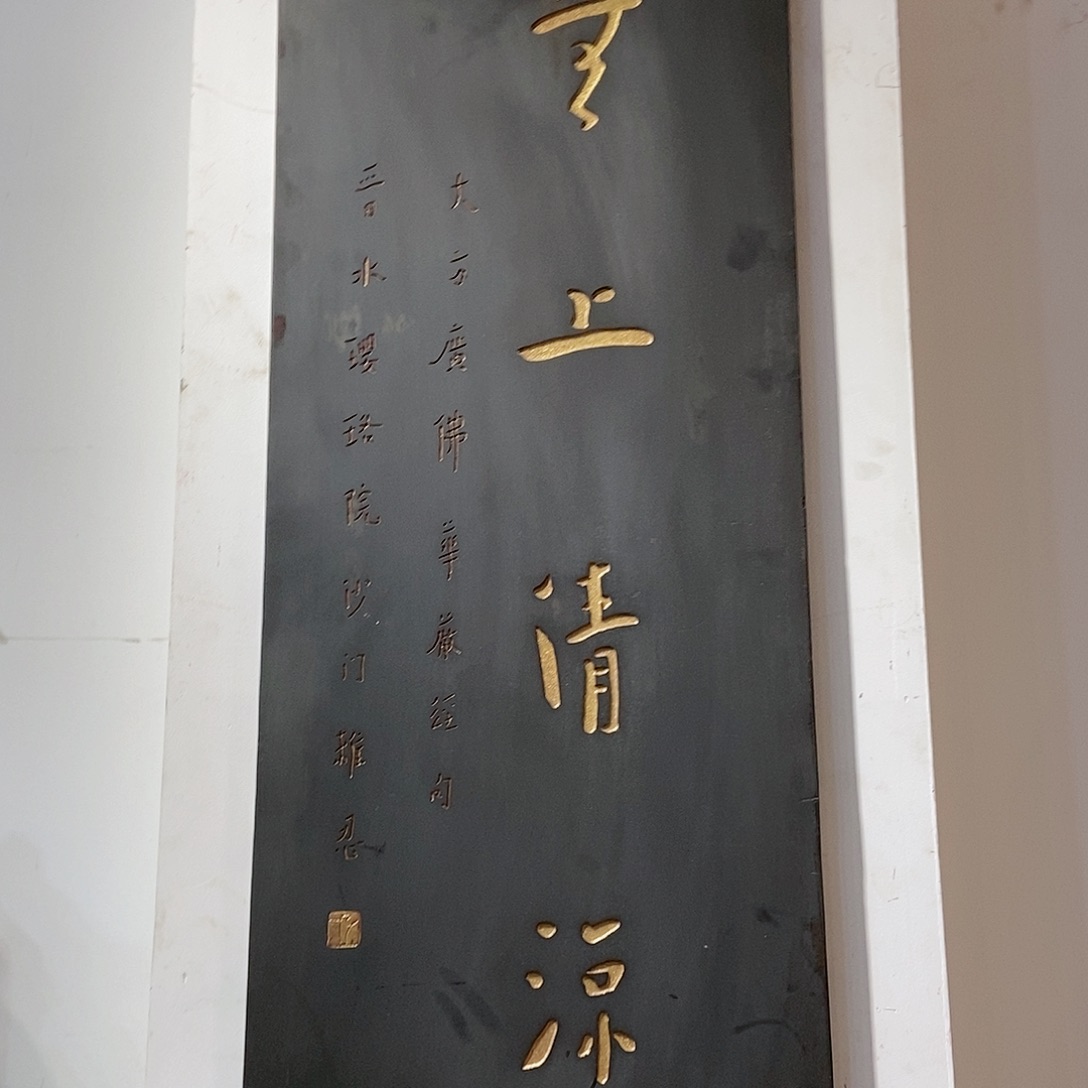 无上清涼
大方廣佛華嚴經句
晉水瓔珞院沙门難忍